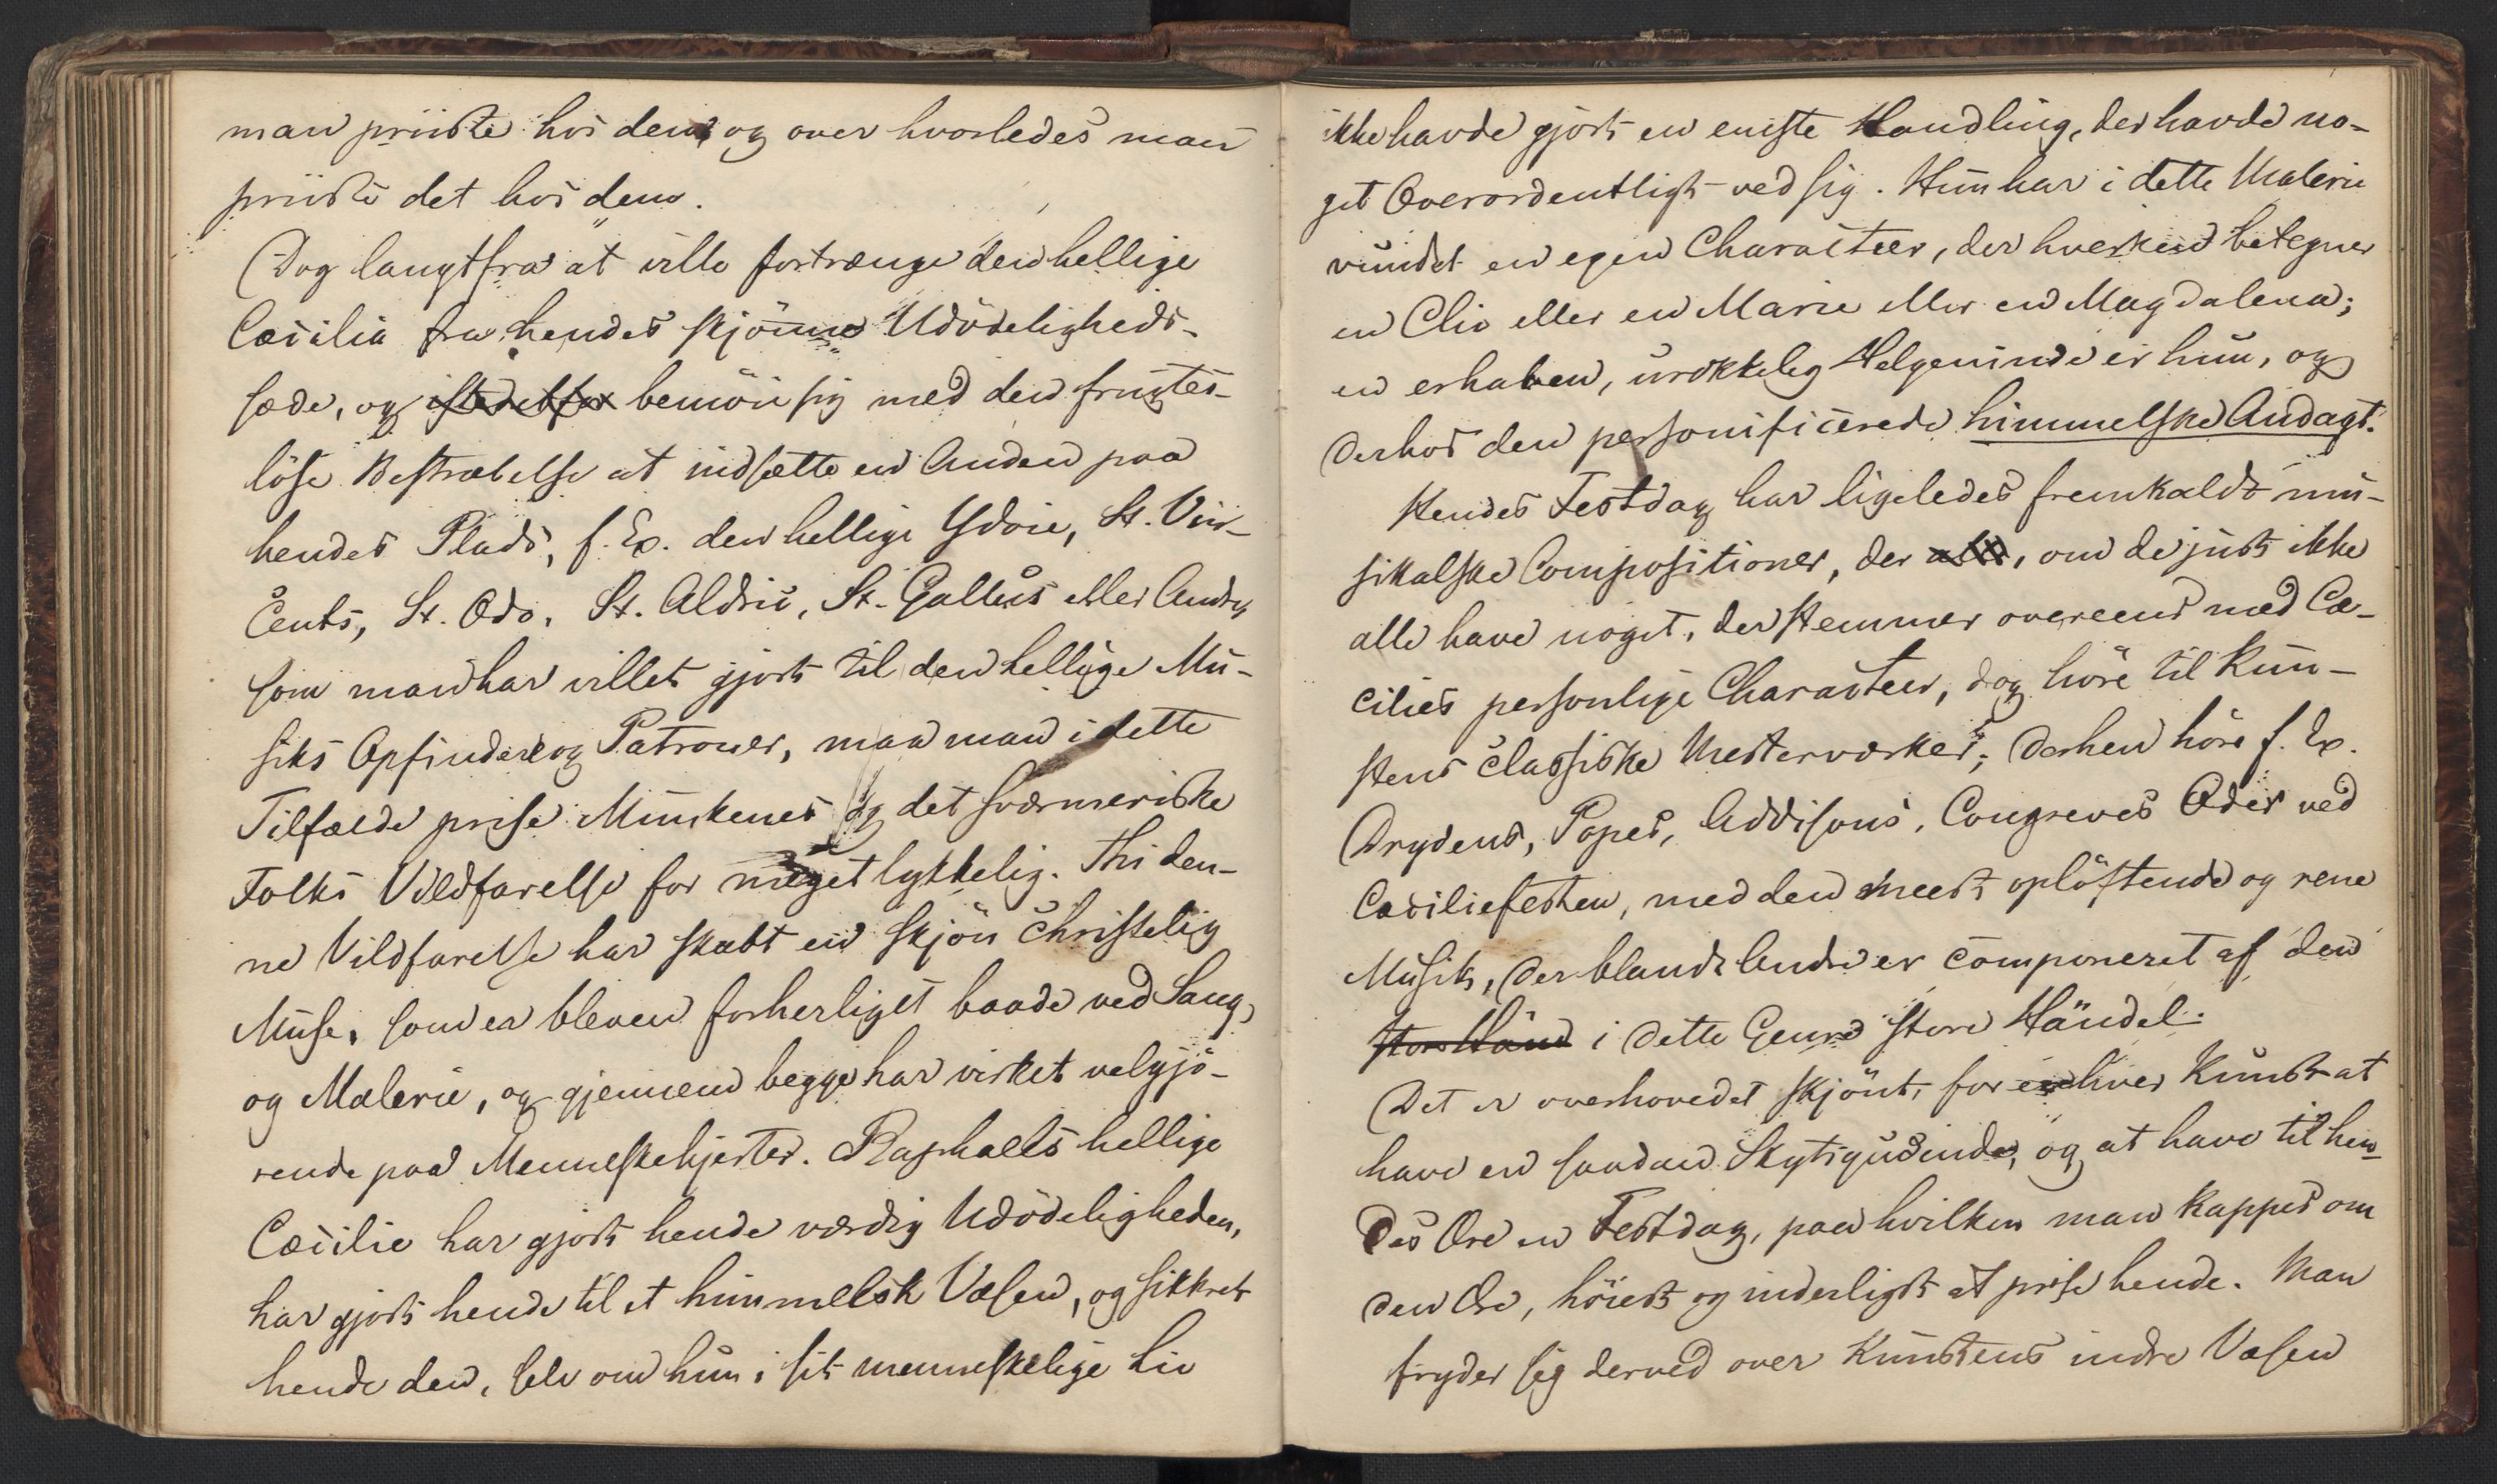 man priiste hos dem og over hvorledes man
priiste det hos dem.
Dog langtfra at ville fortrænge den hellige
Cæcilia fra hendes skjönne Udödeligheds-
sæde, og istedetfor bemöie sig med den frugtes-
löse Bestræbelse at indsætte en Anden paa
hendes Plads, f. Ex. den hellige Ydoie, St. Vin-
cents, St. Odo, St. Aldric, St. Gallus eller Andre,
som man har villet gjort til den hellige Mu-
siks Opfindere og Patroner, maa man i dette
Tilfælde prise Munkenes og det sværmeriske
Folks Vildfarelse for meget lykkelig. Thi den-
ne Vildfarelse har skabt en skjön christelig
Muse, som er bleven forherliget baade ved Sang,
og Malerie, og gjennem begge har virket velgjö-
rende paa Menneskehjerter. Raphaels hellige
Cæcilie har gjort hende værdig Udödeligheden,
har gjort hende til et himmelsk Væsen, og sikkret
hende den, selv om hun i sit menneskelige Liv
ikke havde gjort en eneste Handling, der havde no-
get Overordentligt ved sig. Hun har i dette Malerie
vundet en egen Characteer, der hverken betegner
en Clio eller en Marie eller en Magdalena;
en erhaben, urokkelig Helgeninde er hun, og
derhos den personificerede himmelske Andagt.
Hendes Festdag har ligeledes fremkaldt mu-
sikalske Compositioner, der alle, om de just ikke
alle have noget, der stemmer overeens med Cæ-
cilies personlige Characteer, dog höre til Kun-
stens classiske Mesterværker; derhen höre f. Ex.
Drydens, Popes, Addisons, Congreves Oder ved
Cæciliefesten, med den meest oplöftende og rene
Musik, der blandt Andre er componeret af den
store Händ i dette Genre store Händel.
Det er overhovedet skjönt, for enhver Kunst at
have en saadan Skytsgudinde, og at have til hen-
des Ære en Festdag, paa hvilken man kappes om
den Ære, höiest og inderligst at prise hende. Man
fryder sig derved over Kunstens indre Væsen